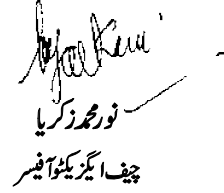 نور محمد زکریا
چیف ایگزیکٹو آفیسر